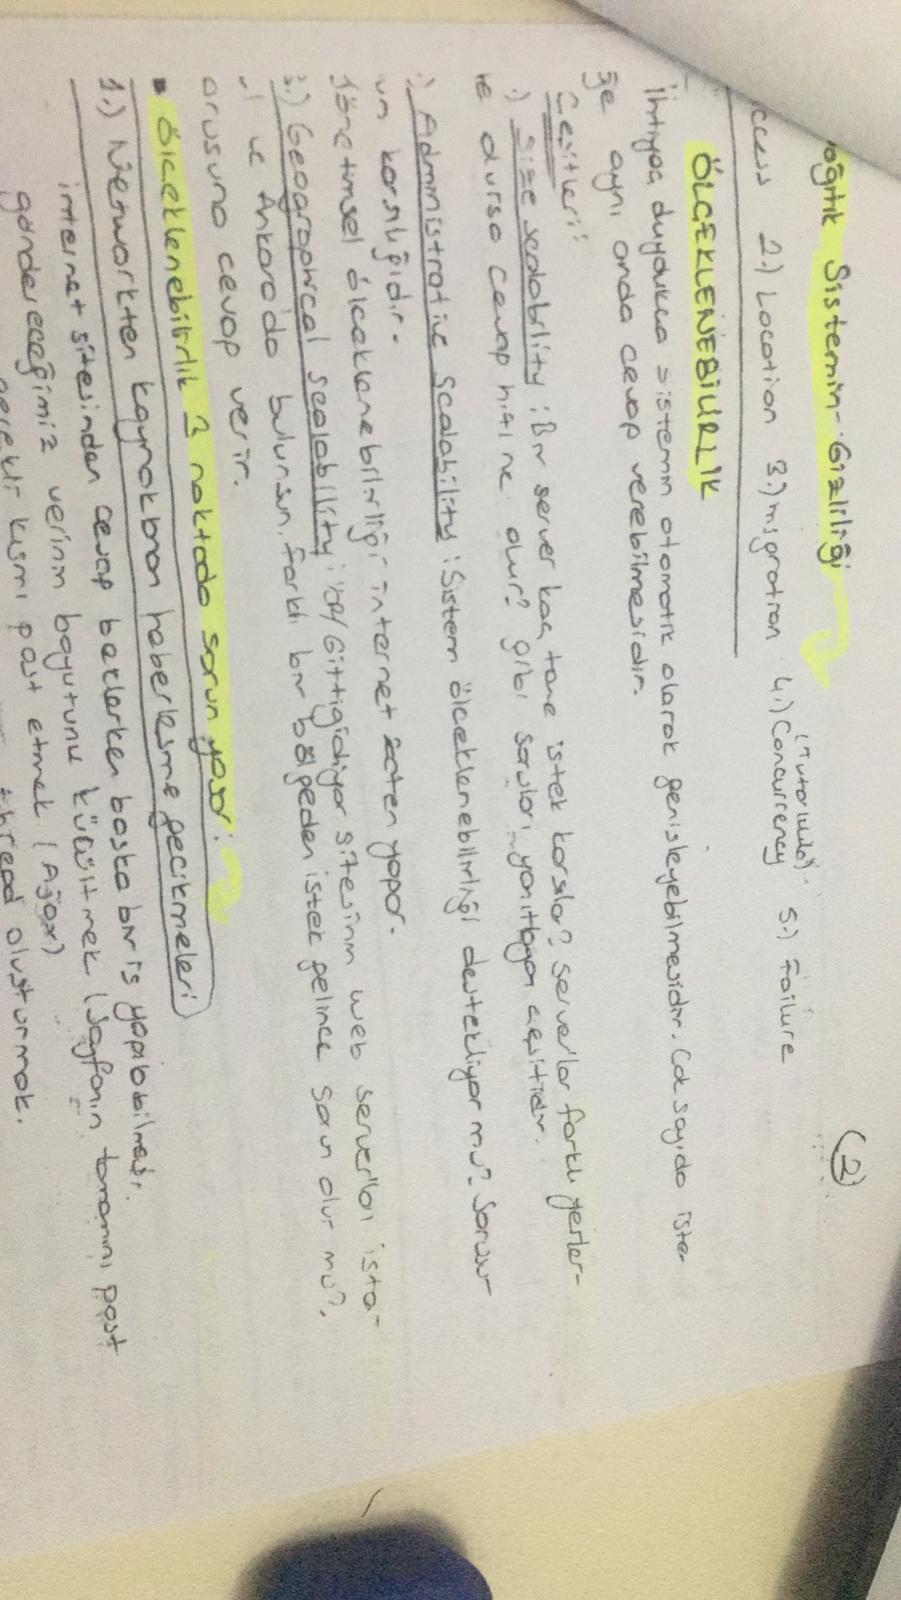 (2)
oğıtık Sistemin Gizliliği
ccess 2.) Location 3.) migration 4.) Concurrency (Tutarlılık) 5.) Failure
ÖLÇEKLENEBİLİRLİK
İhtiyaç duydukça sistemin otomatik olarak genişleyebilmesidir. Çok sayıda iste-
ğe aynı anda cevap verebilmesidir.
Çeşitleri:
.) Size scalability: Bir server kaç tane istek karşılar? Serverlar farklı yerler-
de durursa cevap hızı ne olur? gibi soruları yanıtlayan çeşitidir.
.) Administrative Scalability: Sistem ölçeklenebilirliği destekliyor mu? Sorusu-
un karşılığıdır.
Yönetimsel ölçeklenebilirliği internet zaten yapar.
.) Geographical scalability: Gittigidiyor sitesinin web serverları ista-
ul ve Ankara'da bulunsun. farklı bir bölgeden istek gelince sorun olur mu?
orusuna cevap verir.
▪ Ölçeklenebilirlik 3 noktada sorun yaşar:
1.) Networkten kaynaklanan haberleşme gecikmeleri
internet sitesinden cevap beklerken başka bir iş yapılabilmesi.
göndereceğimiz verinin boyutunu küçültmek (Sayfanın tamamını post
gerekli kısmı post etmek (Ajax)
thread oluşturmak.